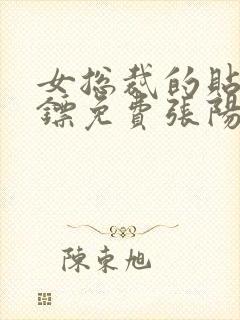 女总裁的貼
鏢免費張陽
陳東旭